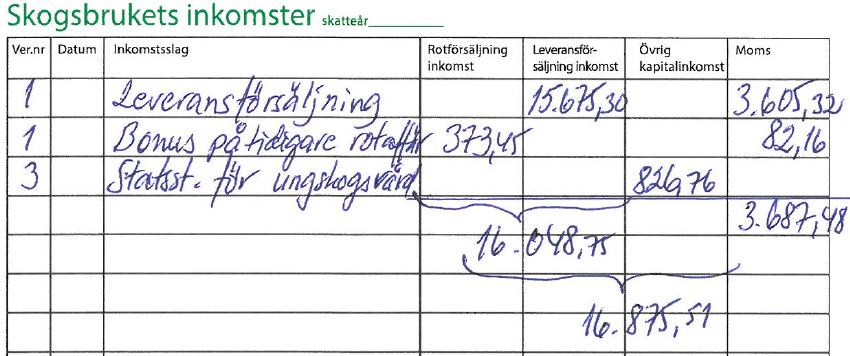 Skogsbrukets inkomster skatteår
Ver.nr Datum Inkomstsslag Rotförsäljning inkomst Leveransför-säljning inkomst Övrig kapitalinkomst Moms
1 Leveransförsäljning 15.675,30 3.605,32
1 Bonus på tidigare rotaffär 373,45 82,16
3 Statsst. för ungskogsvård 826,76
3.687,48
16.048,75
16.875,51